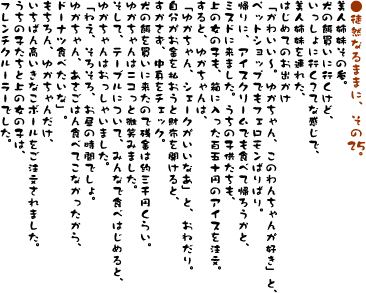 ●徒然なるままに、その25。
美人姉妹その参。
犬の餌買いに行くけど、
いっしょに行く?てな感じで、
美人姉妹を連れた、
はじめてのお出かけ
「かわいい〜。ゆかちゃん、このわんちゃんが好き」と、
ペットショップでもフェロモンばりばり。
帰りに、アイスクリームでも食べて帰ろうかと、
ミスドに来ました。うちの子供たちも、
上の女の子も、箱に入った百五十円のアイスを注文。
すると、ゆかちゃんは、
「ゆかちゃん、シェークがいいなあ」と、おねだり。
自分がお金を払おうと財布を開けると、
すかさず、中身をチェック。
犬の餌を買いに来たので残金は約三千円くらい。
ゆかちゃんはニコっと微笑みました。
そして、テーブルについて、みんなで食べはじめると、
ゆかちゃんはおっしゃいました。
「ねえ、そろそろ、お昼の時間でしょ。
ゆかちゃん、あさごはん食べてこなかったから、
ドーナッツ食べたいな」
もちろん、ゆかちゃんだけ、
いちばん高いきなこボールをご注文されました。
うちの子たちと上の女の子は、
フレンチクルーラーでした。